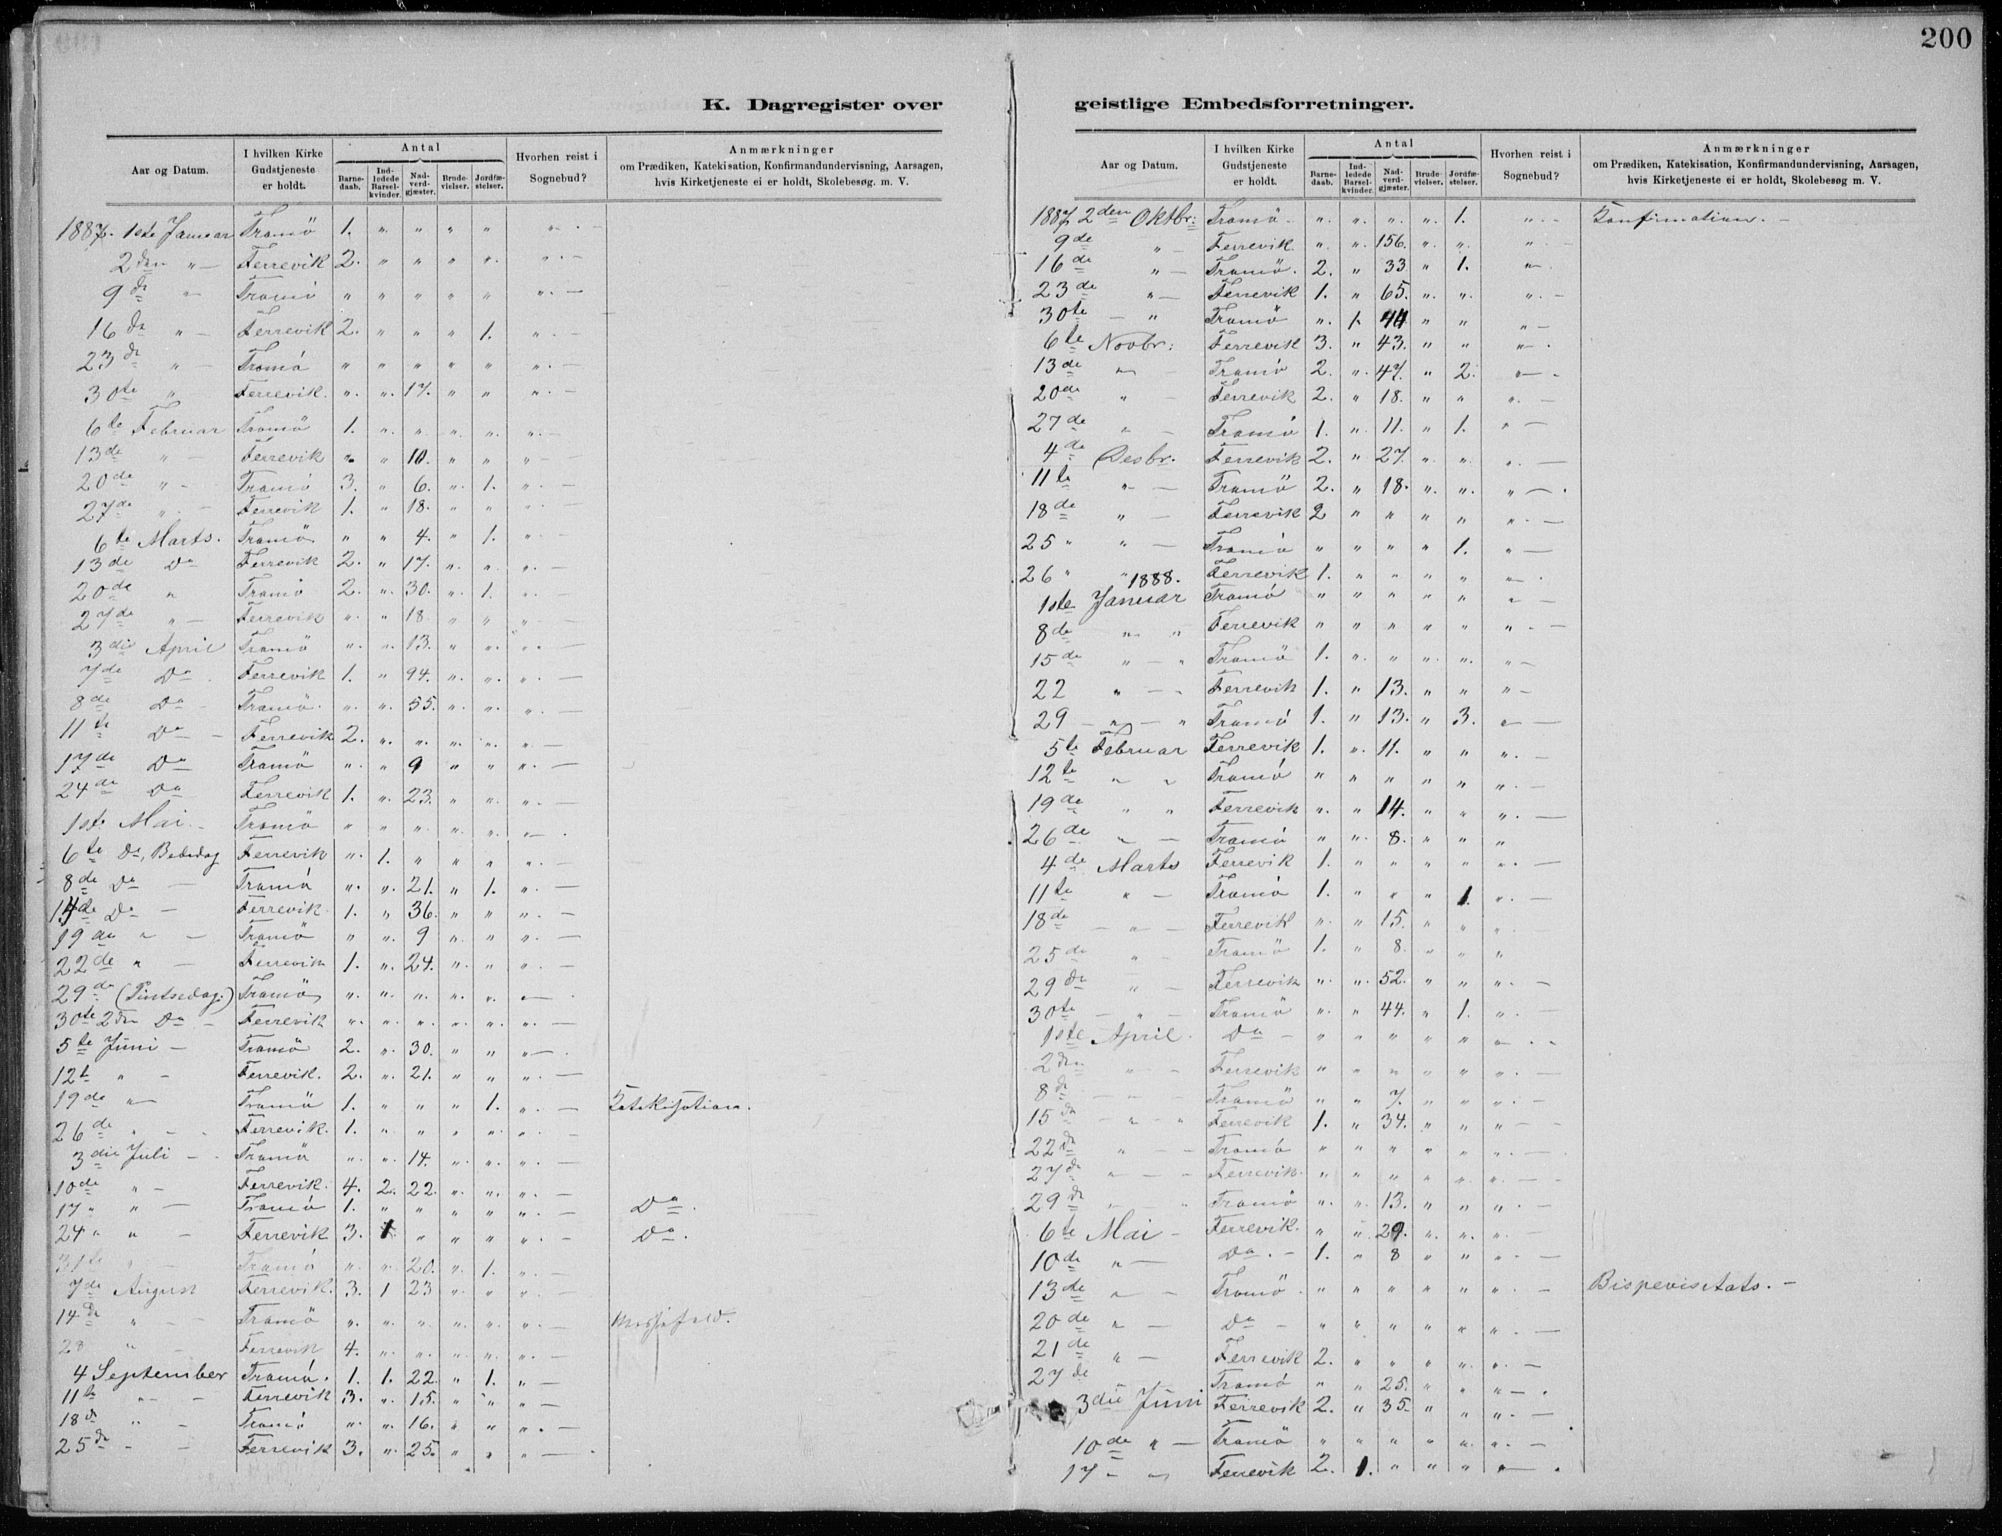 200
K. Dagregister over
Aar og Datum.
I hvilken Kirke Gudstjeneste er holdt.
Antal
Barne-daab.
Ind-ledede Barsel-kvinder.
Nad-verd-gjæster.
Brude-vielser.
Jordfæ-stelser.
Hvorhen reist i Sognebud?
Anmærkninger
om Prædiken, Katekisation, Konfirmandundervisning, Aarsagen,
hvis Kirketjeneste ei er holdt, Skolebesøg m. V.
1887. 1ste Januar Tromö 1. " " " " " -
2den " - Færevik 2. " " " " " -
9de " Tromö " " " " " " -
16de " - Færevik 2. " " " 1. " -
23de " - Tromö " " " " " " -
30te " Færevik. " " 17. " " " -
6te Februar Tromö 1. " " " " " -
13de " - Færevik " " 10. " " " -
20de " - Tromö 3. " 6. " 1. " -
27de " - Færevik 1. " 18. " " " -
6te Marts. Tromö " " 4. " 1. " -
13de Do Færevik 2. " 17. " " " -
20de " Tromö 2. " 30. " 1. " -
27de " - Færevik " " 18 " " " -
3die April Tromö " " 13. " " " -
7de Do Færevik 1. " 94. " " " -
8de Do Tromö " " 55. " " " -
11te Do - Færevik 2. " " " " " -
17de Do Tromö " " 9 " " " -
24de Do Færevik 1. " 23. " " " -
1ste Mai. - Tromö " " " " " " -
6te Do, Bededag Færevik " 1. " " " " -
8de Do - Tromö " " 21. " 1. " -
14de Do - Færevik 1. " 36. " " " -
19de " - Tromö " " 9 " " " -
22de " - Færevik 1. " 24. " " " -
29de (Pintsedag.) Tromö " " " " " " -
30te 2den Do - Færevik " " " " " " -
5te Juni - Tromö 2. " 30. " " " -
12te " - Færevik. 2. " 21. " " " -
19de " - Tromö 1. " " " 1. " - Katekisation.
26de " - Færevik. 1. " " " " " -
3die Juli - Tromö " " 14. " " " -
10de " - Færevik. 4. 2. 22. " " " -
17 " " - Tromö 1. " " " " " - Do.
24 " " - Færevik 3. 1 " " " " - Do.
31te " - Tromö " " 20. " 1. " -
7de August Færevik. 3. 1 23 " " " -
14de " - Tromö " " " " " " - Messefald.
28 " - Færevik 4. " " " " " -
4 September Tromö. 1. 1. 22. " 1. " -
11te " - Færevik 3. " 15. " " " -
18de " - Tromö " " 16. " " " -
25de " - Færevik 3. " 25. " " " -
geistlige Embedsforretninger.
Aar og Datum.
I hvilken Kirke Gudstjeneste er holdt.
Antal
Barne-daab.
Ind-ledede Barsel-kvinder.
Nad-verd-gjæster.
Brude-vielser.
Jordfæ-stelser.
Hvorhen reist i Sognebud?
Anmærkninger
om Prædiken, Katekisation, Konfirmandundervisning, Aarsagen,
hvis Kirketjeneste ei er holdt, Skolebesøg m. V.
1887 2den Oktbr: Tromö. " " " " 1. " - Konfirmation. -
9de " - Færevik. " " 156. " " " -
16de " - Tromö. 2. " 33 " 1. " -
23de " - Færevik 1. " 65. " " " -
30te - " Tromö " 1. 44 " " " -
6te Novbr: Færevik 3. " 43. " " " -
13de " - Tromö 2. " 47. " 2. " -
20de " - Færevik 2. " 18. " " " -
27de " - Tromö 1. " 11. " 1. " -
4de Desbr. Færevik 2. " 27. " " " -
11te " - Tromö 2. " 18. " " " -
18de " - Færevik 2 " " " " " -
25 " " - Tromö " " " " 1. " -
26 " " Færevik 1. " " " " " -
1888.
1ste Januar Tromö " " " " " " -
8de " " Færevik " " " " " " -
15de " - " Tromö 1. " " " " " -
22 " - - Færevik 1. " 13. " " " -
29 - " - " Tromö 1. " 13. " 3. " -
5te Februar Færevik 1. " 11. " " " -
12te " " Tromö " " " " " " -
19de " " Færevik " " 14. " " " -
26de " - Tromö " " 8. " " "
4de Marts Færevik 1. " " " " " -
11te " - Tromö 1. " " " 1. " -
18de - " - Færevik " " 15. " " " -
25de " - Tromö 1. " 8. " " "
29de " - Færevik " " 52. " " " -
30te - " - Tromö " " 44. " 1. " -
1ste April. Do - " " " " " " -
2den " - Færevik " " " " " " -
8de - " - Tromö " " 7. " " " -
15de - " " Færevik 1. " 34. " " " -
22de " - - Tromö " " " " " " -
27de " - - Færevik. " " " " " " -
29de " - " Tromö " " 13. " " " -
6te Mai - Færevik. " " 29. " " " -
10de " - Do. - 1. " 8 " " " -
13de " - Tromö. " " " " " " - Bispevisitats. -
20de " - Do - " " " " " " -
21de " - Færevik 2. " " " " " -
27de Tromö " " 25. " " " -
3die Juni Færevik 2. " 35. " " " -
10de " - Tromö " " " " " " -
17 " " Færevik 2. 1. " " " " -